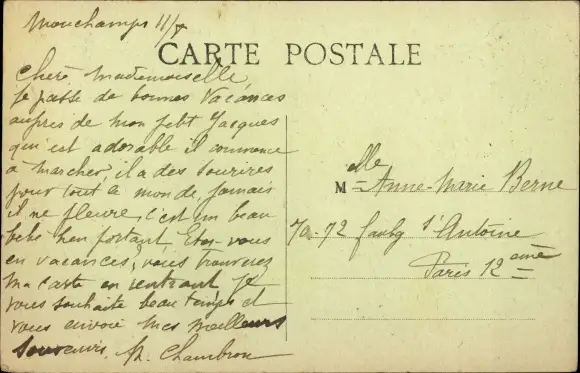 Mouchamps 11/7
CARTE POSTALE
Chère Mademoiselle
Je passe de bonnes vacances
auprès de mon petit Jacques
qui est adorable il commence
à marcher, il a des sourires
pour tout le monde jamais
il ne pleure, c'est un beau
bébé bien portant, Etes-vous
en vacances, vous trouverez
ma carte en rentrant je
vous souhaite beau temps et
vous envoie mes meilleurs
souvenirs. M. Chambron
Mlle Anne-Marie Berne
70-72 faubg St Antoine
Paris 12eme